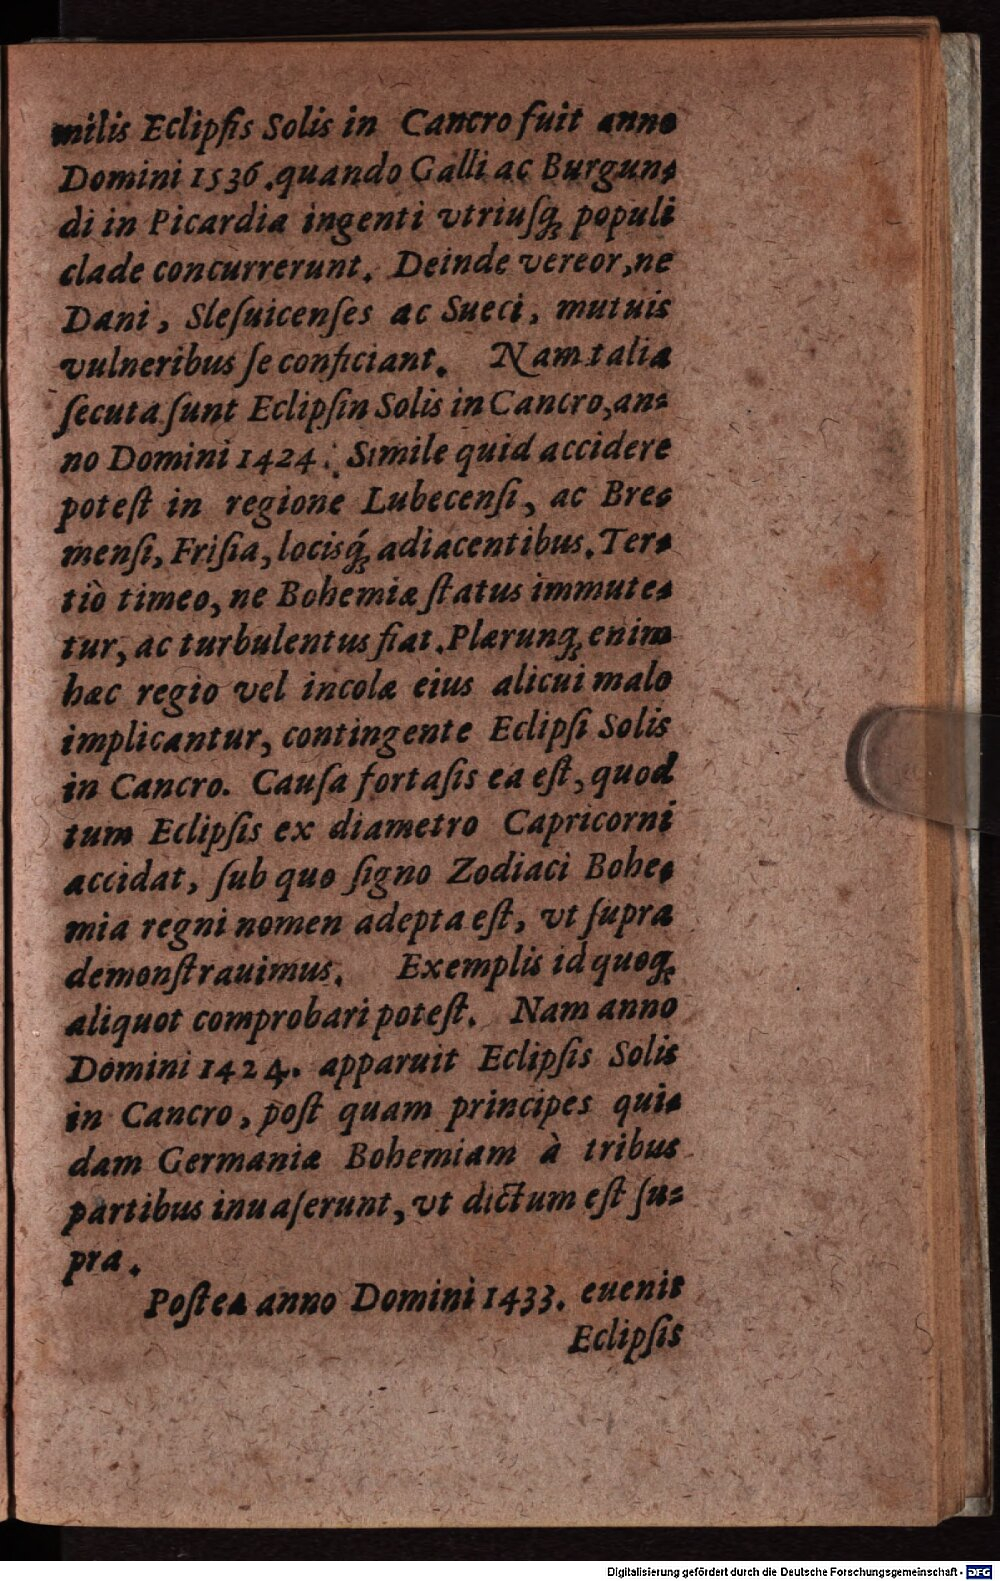 milis Eclipſis Solis in Cancro fuit anno
Domini 1536. quando Galli ac Burgun-
di in Picardia ingenti vtriuſq; populi
clade concurrerunt. Deinde vereor, ne
Dani, Sleſuicenſes ac Sueci, mutuis
vulneribus ſe conficiant. Nam talia
ſecuta ſunt Eclipſin Solis in Cancro, an-
no Domini 1424. Simile quid accidere
poteſt in regione Lubecenſi, ac Bre-
menſi, Friſia, locisq́; adiacentibus. Ter-
tiò timeo, ne Bohemiæ ſtatus immute-
tur, ac turbulentus fiat. Plærunq; enim
hæc regio vel incolæ eius alicui malo
implicantur, contingente Eclipſi Solis
in Cancro. Cauſa fortaſis ea eſt, quod
tum Eclipſis ex diametro Capricorni
accidat, ſub quo ſigno Zodiaci Bohe-
mia regni nomen adepta eſt, vt ſupra
demonſtrauimus. Exemplis id quoq;
aliquot comprobari poteſt. Nam anno
Domini 1424. apparuit Eclipſis Solis
in Cancro, poſt quam principes qui-
dam Germaniæ Bohemiam à tribus
partibus inuaſerunt, vt dictum eſt ſu-
pra.
Poſtea anno Domini 1433. euenit
Eclipſis
Digitalisierung gefördert durch die Deutsche Forschungsgemeinschaft - DFG